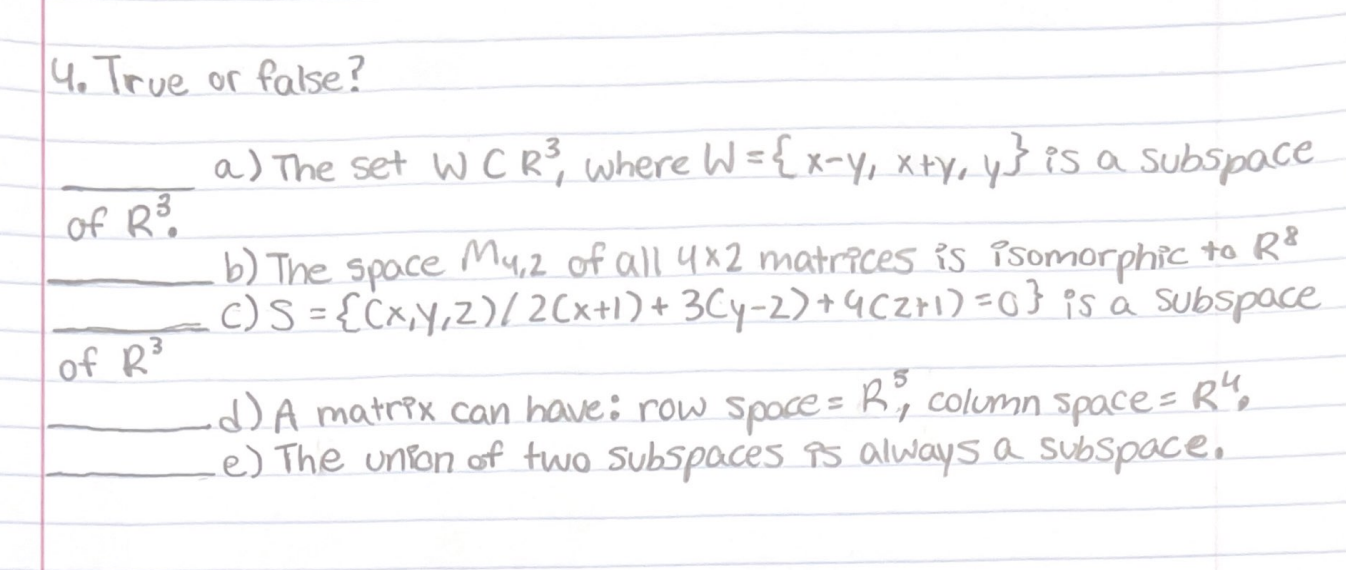 4. True or false?
_____ a) The set W ⊂ R³, where W = { x-y, x+y, y} is a subspace
of R³.
_____ b) The space M4,2 of all 4x2 matrices is isomorphic to R⁸
_____ c) S = {(x,y,z) / 2(x+1) + 3(y-2) + 4(z+1) = 0} is a subspace
of R³
_____ d) A matrix can have: row space = R⁵, column space = R⁴.
_____ e) The union of two subspaces is always a subspace.